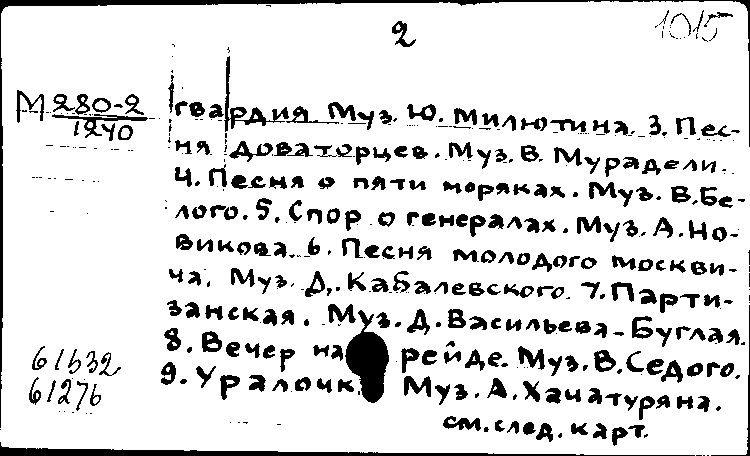 2
1015
М 280-2
1240
гвардия. Муз. Ю. Милютина. 3. Пес-
ня доваторцев. Муз. В. Мурадели.
4. Песня о пяти моряках. Муз. В. Бе-
лого. 5. Спор о генералах. Муз. А. Но-
викова. 6. Песня молодого москви-
ча. Муз. Д. Кабалевского. 7. Парти-
занская. Муз. Д. Васильева-Буглая.
8. Вечер на рейде. Муз. В. Седого.
9. Уралочк Муз. А. Хачатуряна.
см. след. карт.
61632
61276